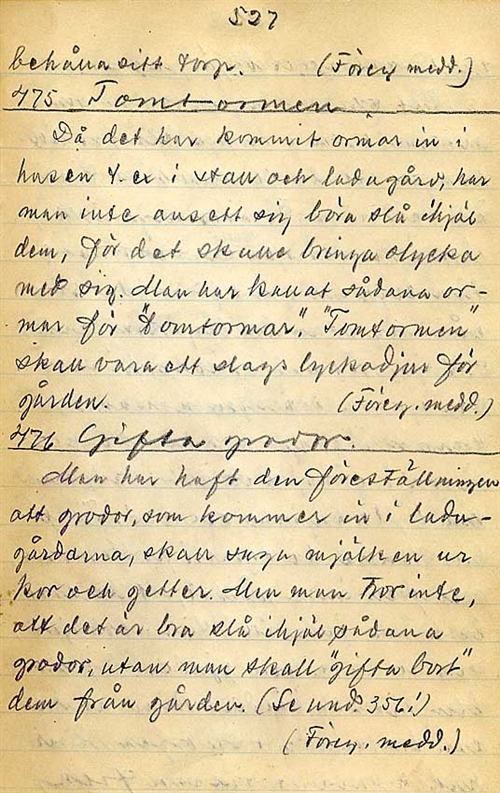 527
behålla sitt torp. (Föreg. medd.)
475 Tomtormen
Då det har kommit ormar in i
husen t. ex i stall och ladugård, har
man inte ansett sig böra slå ihjäl
dem, för det skulle bringa olycka
med sig. Man har kallat sådana or-
mar för "tomtormar". "Tomtormen"
skall vara ett slags lyckodjur för
gården. (Föreg. medd.)
476 Gifta grodor.
Man har haft den föreställningen
att grodor, som kommer in i ladu-
gårdarna, skall suga mjölken ur
kor och getter. Men man tror inte,
att det är bra slå ihjäl sådana
grodor, utan man skall "gifta bort"
dem från gården. (Se und. 356!)
(Föreg. medd.)